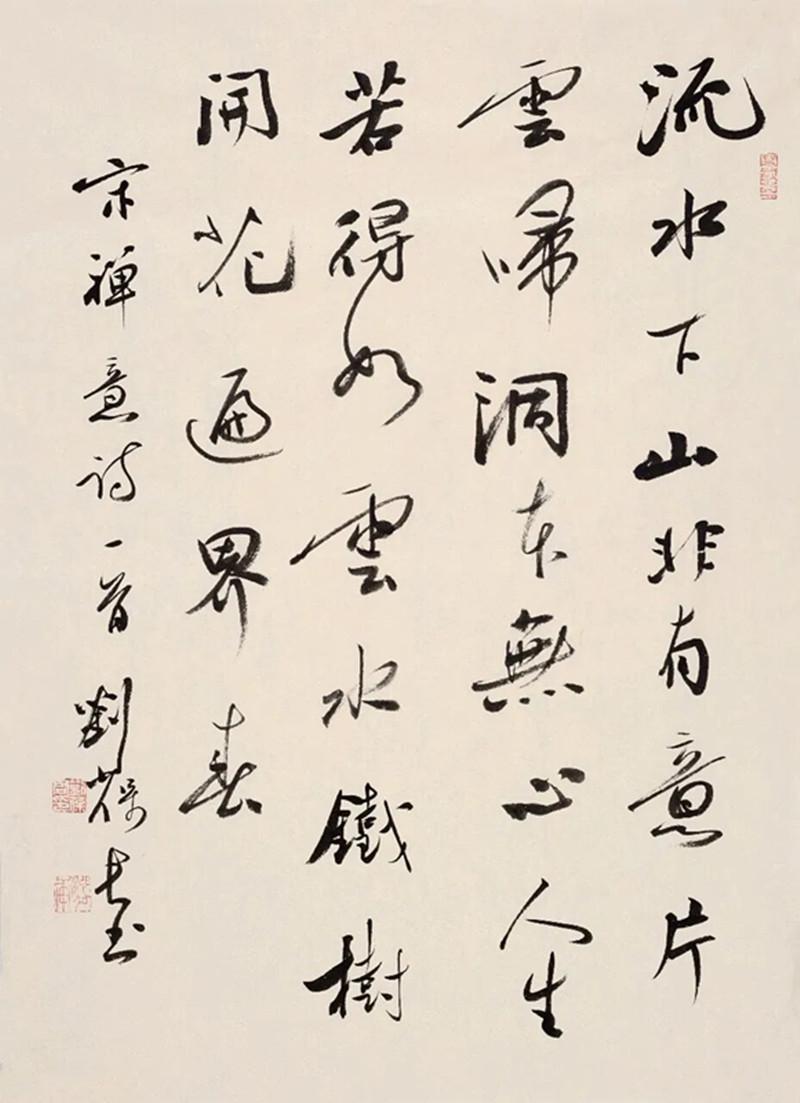 流水下山非有意片
雲歸洞本無心人生
若得如雲水鐵樹
開花遍界春
宋禪意詩一首 劉